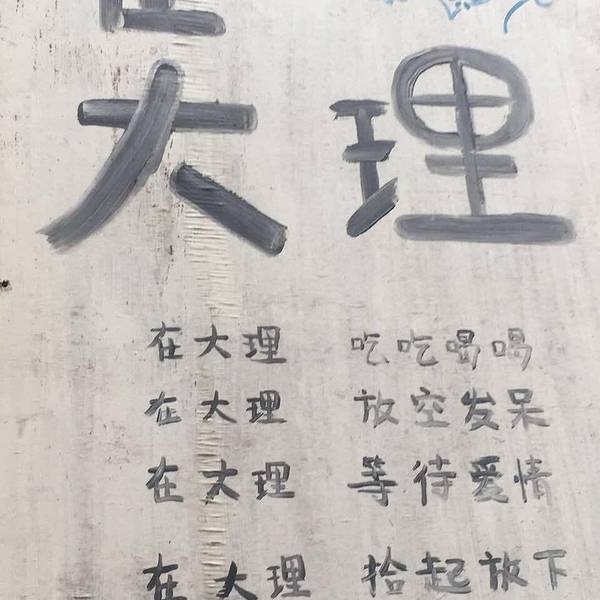 大理
在大理 吃吃喝喝
在大理 放空发呆
在大理 等待爱情
在大理 捡起放下